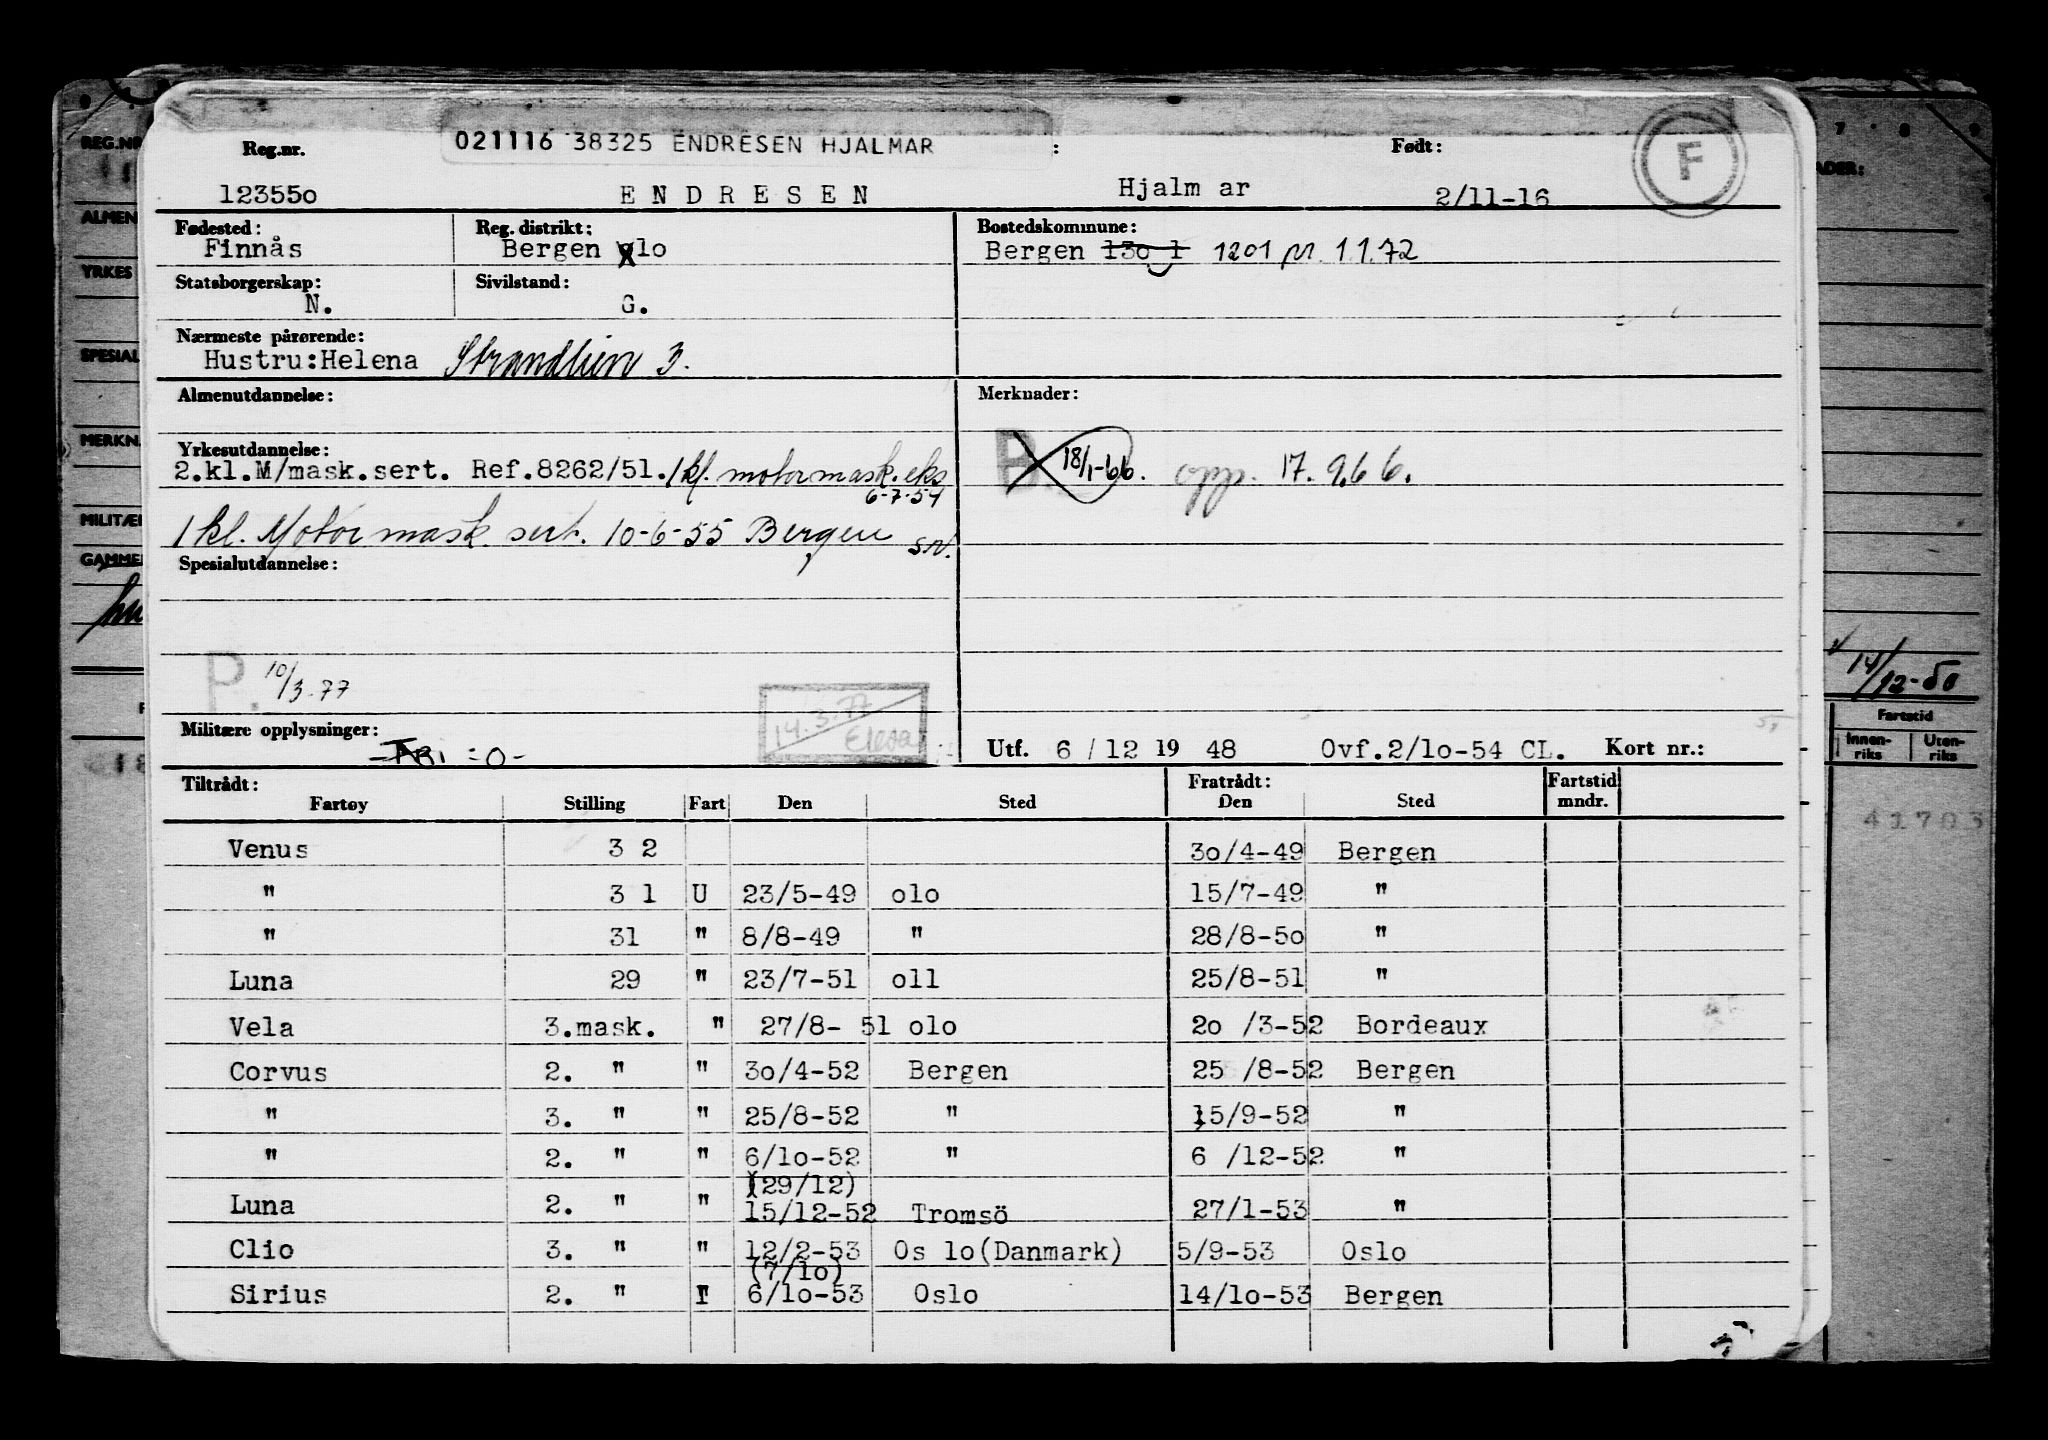 021116 38325 ENDRESEN HJALMAR
Reg.nr. : Født: F
12355o E N D R E S E N Hjalm ar 2/11-16
Fødested: Reg. distrikt: Bostedskommune:
Finnås Bergen olo Bergen 13o 1 1201 pr. 1.1.72
Statsborgerskap: Sivilstand:
N. G.
Nærmeste pårørende:
Hustru:Helena Strandlien 3.
Almenutdannelse: Merknader:
Yrkesutdannelse:
2.kl.M/mask.sert. Ref.8262/51. 1 kl. motormask. eks B. 18/1-66. opp. 17.9.66.
6-7-54
1 kl. Motor mask. sert. 10-6-55 Bergen s.n.
Spesialutdannelse:
P. 10/3-77
14.3.77
Militære opplysninger: Utf. 6 / 12 19 48 Ovf.2/lo-54 CL. Kort nr.:
:0-
Tiltrådt: Fratrådt: Fartstid
Fartøy Stilling Fart Den Sted Den Sted mndr.
Venus 3 2 3o/4-49 Bergen
" 3 1 U 23/5-49 olo 15/7-49 "
" 31 " 8/8-49 " 28/8-5o "
Luna 29 " 23/7-51 oll 25/8-51 "
Vela 3.mask. " 27/8- 51 olo 2o /3-52 Bordeaux
Corvus 2. " " 3o/4-52 Bergen 25 /8-52 Bergen
" 3. " " 25/8-52 " 15/9-52 "
" 2. " " 6/lo-52 " 6 /12-52 "
(29/12)
Luna 2. " " 15/12-52 Tromsö 27/1-53 "
Clio 3. " " 12/2-53 Os lo(Danmark) 5/9-53 Oslo
(7/lo)
Sirius 2. " " 6/lo-53 Oslo 14/lo-53 Bergen
REG.NR
ALMEN
YRKES
SPESIAL
MERKN
MILITÆR
GAMMEL
7 8 9
14/12-50
Fartstid
Innen-riks Uten-riks
41703